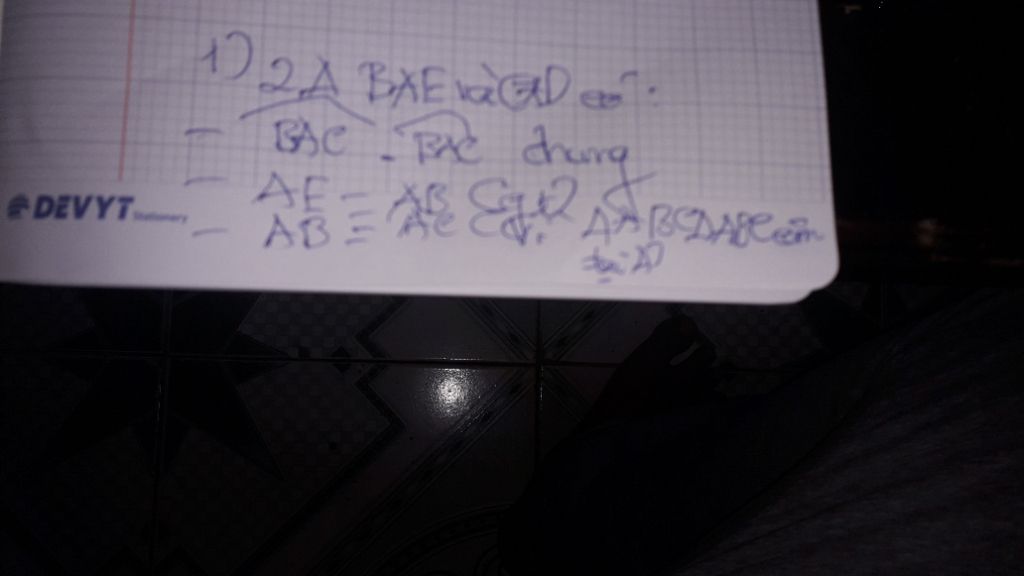 1) 2 Δ BAE và CAD có:
- BAC = BAC chung
- AE = AB (gt)
- AB = AC ( ΔABC cân
tại A)
DEVYT
Stationery